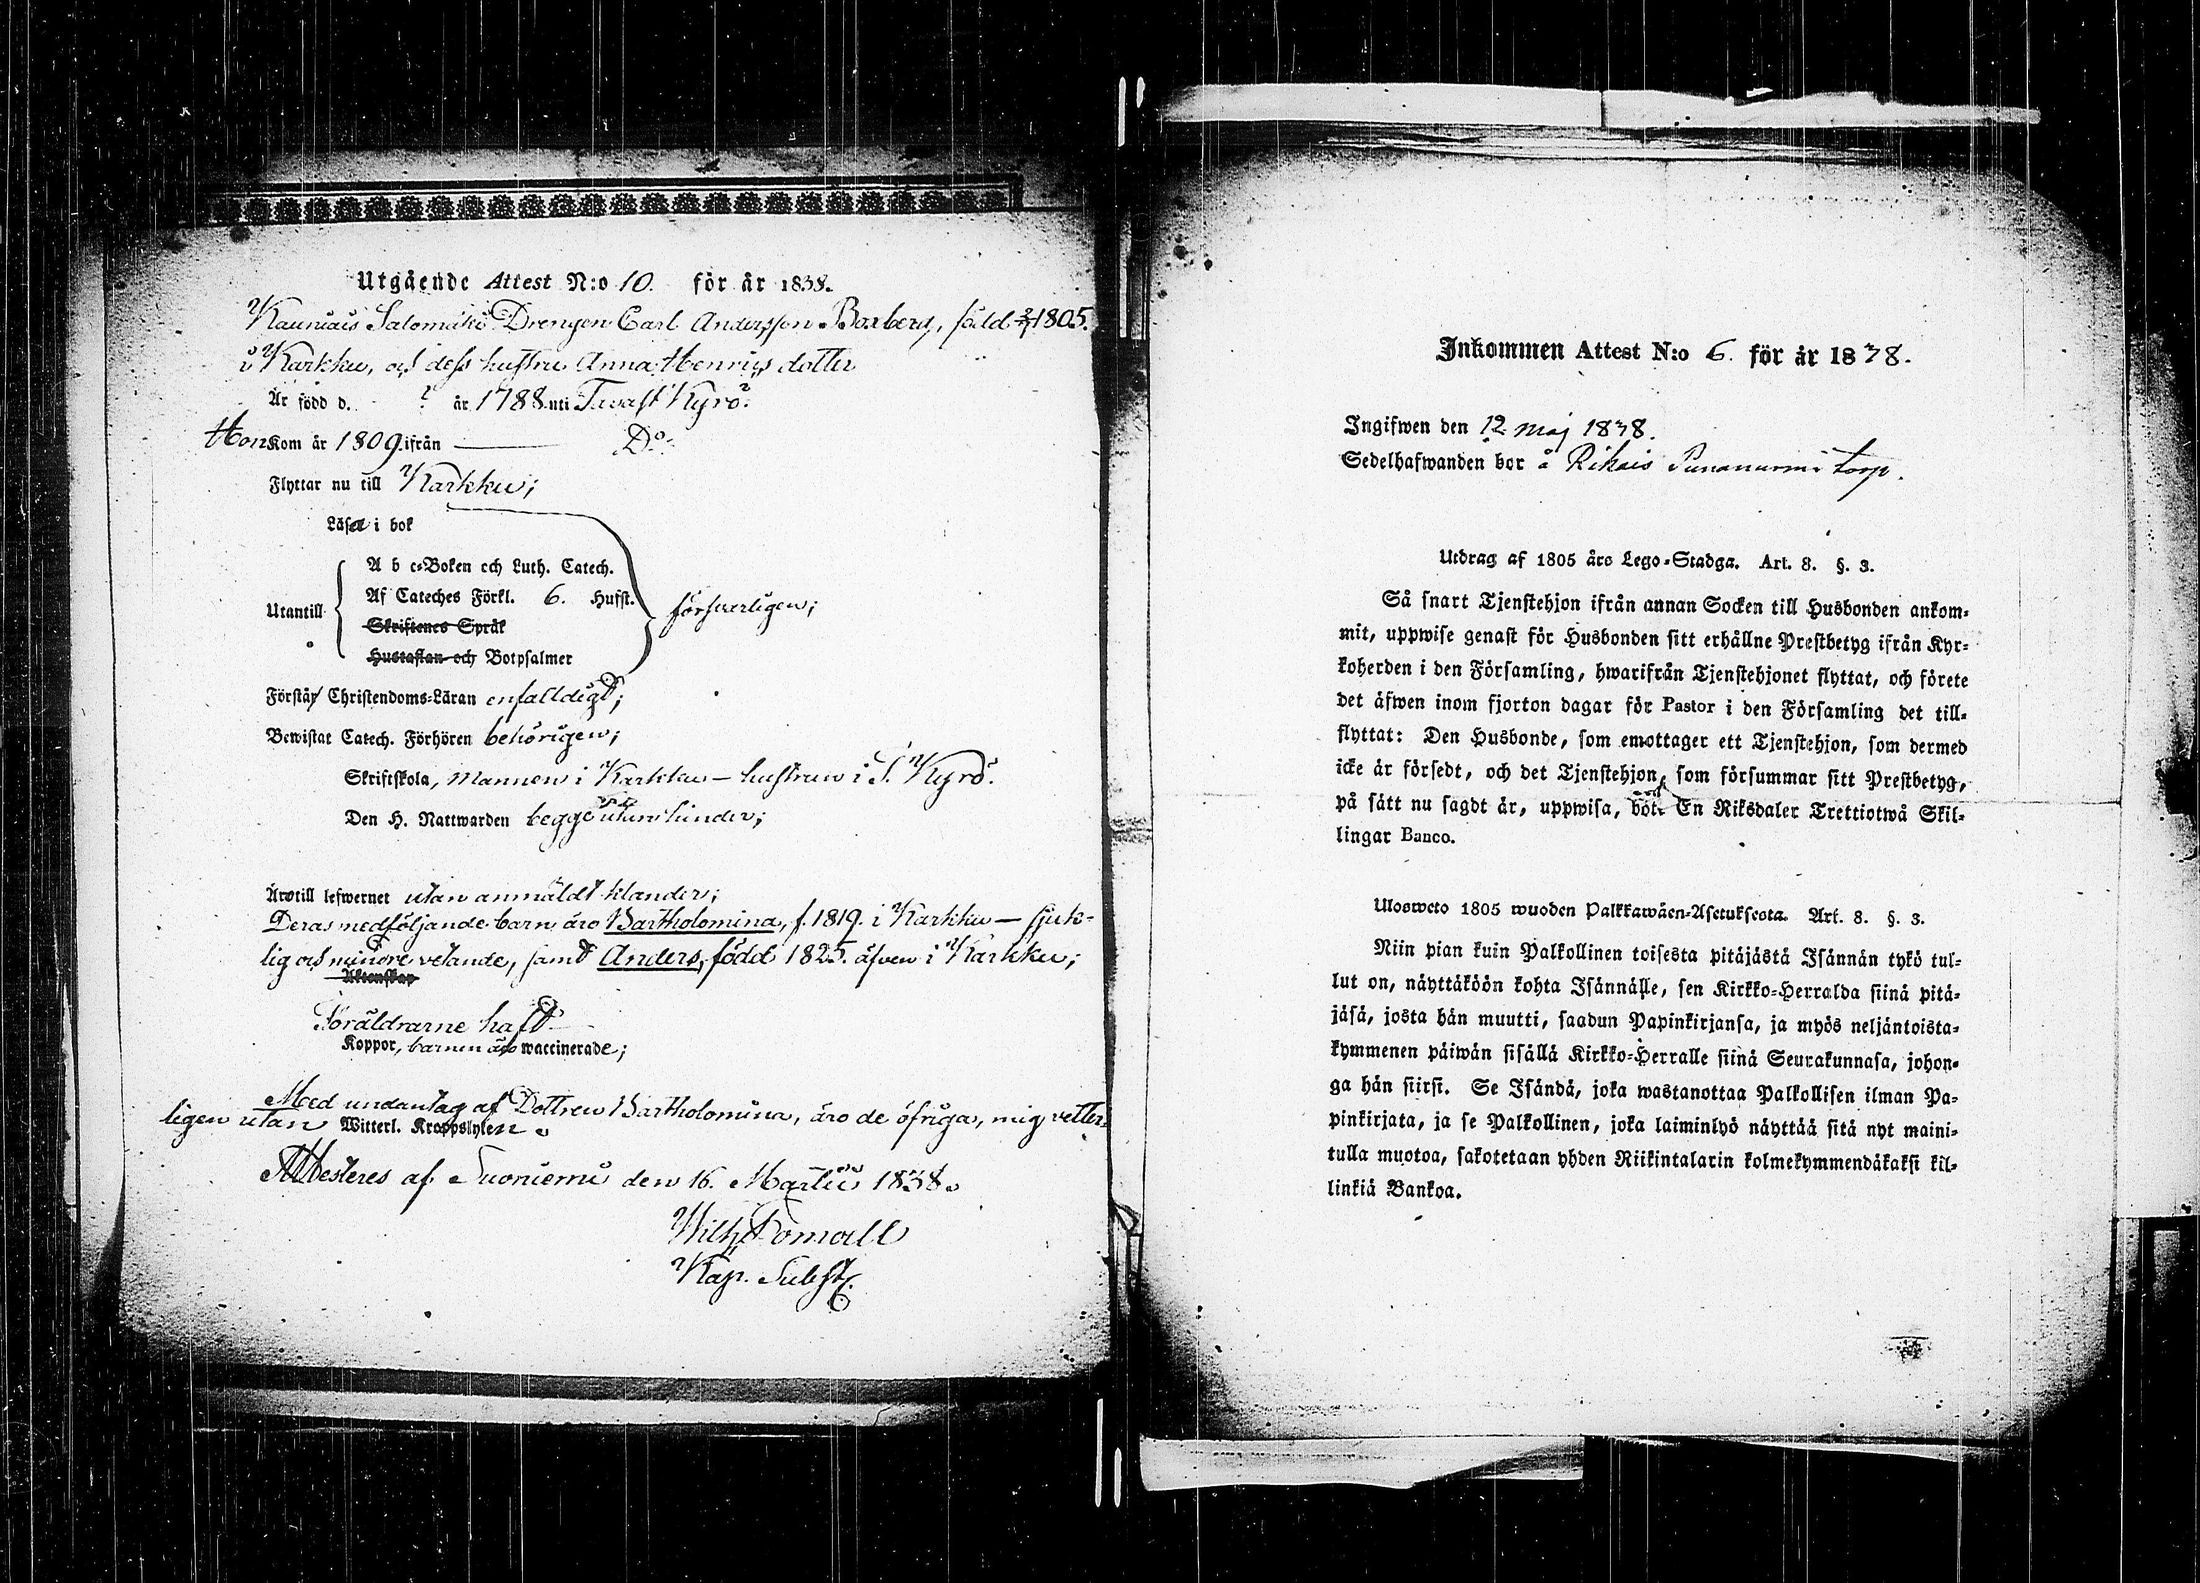 Utgående Attest N:o 10. för år 1838.
Kauniais Salomäki Drengen Carl Andersson Boxberg, född 2/7 1805.
i Karkku, och dess hustru Anna Henrics dotter
Är född d. ? år 1788 uti Tavast Kyrö.
Hon Kom år 1809. ifrån —— Do.
Flyttar nu till Karkku;
Läsa i bok
A b c-Boken och Luth. Catech.
Af Cateches Förkl. 6. Hufst.
Utantill försvarligen;
Skriftenes Språk
Hustaflan och Botpsalmer
Förstå Christendoms-Läran enfalldigt;
Bewistat Catech. Förhören behörigen;
Skriftskola, mannen i Karkku – hustrun i T. Kyrö.
Den H. Nattwarden begge utan hinder;
Äro till lefwernet utan anmäldt klander;
Deras medföljande barn äro Bartholomina, f. 1819. i Karkku – sjuk-
lig och mindre vetande, samt Anders, född 1825. äfven i Karkku;
Äktenskap
Föräldrarne haft
Koppor, barnen äro waccinerade;
Med undantag af Dottren Bartholomina, äro de öfriga, mig vetter-
ligen utan Witterl. Kroppslyten.
Attesteres af Suoniemi den 16. Martii 1838.
Wilh. Fomall
Kap. Subst.
Inkommen Attest N:o 6. för år 1838.
Ingifwen den 12 maj 1838.
Sedelhafwanden bor å Rikais Punanurmi torp.
Utdrag af 1805 års Lego-Stadga. Art. 8. §. 3.
Så snart Tjenstehjon ifrån annan Socken till Husbonden ankom-
mit, uppwise genast för Husbonden sitt erhållne Prestbetyg ifrån Kyr-
koherden i den Församling, hwarifrån Tjenstehjonet flyttat, och förete
det äfwen inom fjorton dagar för Pastor i den Församling det till-
flyttat: Den Husbonde, som emottager ett Tjenstehjon, som dermed
icke är försedt, och det Tjenstehjon, som försummar sitt Prestbetyg,
på sätt nu sagdt är, uppwisa, böte En Riksdaler Trettiotwå Skil-
lingar Banco.
Ulosweto 1805 wuoden Palkkawäen-Asetuksesta. Art. 8. §. 3.
Niin pian kuin Palkollinen toisesta pitäjästä Isännän tykö tul-
lut on, näyttäköön kohta Isännälle, sen Kirkko-Herralda siinä pitä-
jäsä, josta hän muutti, saadun Papinkirjansa, ja myös neljäntoista-
kymmenen päiwän sisällä Kirkko-Herralle siinä Seurakunnasa, johon-
ga hän siirsi. Se Isändä, joka wastanottaa Palkollisen ilman Pa-
pinkirjata, ja se Palkollinen, joka laiminlyö näyttää sitä nyt maini-
tulla muotoa, sakotetaan yhden Riikintalarin kolmekymmendäkaksi kil-
linkiä Bankoa.